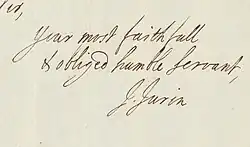 Your most faithfull
& obliged humble Servant,
J. Jurin